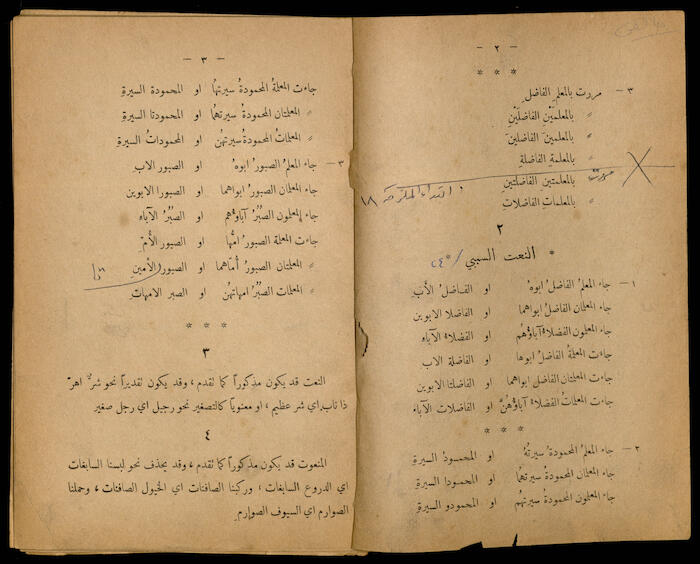 - ٢ -
* * *
٣ — مررت بالمعلم الفاضلِ
〃 بالمعلمَيْن الفاضلَيْنِ
〃 بالمعلمين الفاضلينَ
〃 بالمعلمة الفاضلة
بالمعلمتين الفاضلتين
〃 بالمعلمات الفاضلات
١٨
٢
* النعت السببي *
١ — جاء المعلمُ الفاضلُ ابوهُ او الفاضل الأب
جاء المعلمان الفاضلُ ابواهما او الفاضلا الابوين
جاء المعلمون الفضلاءُ آباؤُهُم او الفضلاء الآباء
جاءت المعلمةُ الفاضلُ ابوها او الفاضلة الاب
جاءت المعلمتان الفاضلُ ابواهما او الفاضلتا الابوين
جاءت المعلماتُ الفضلاءُ آباؤُهُنَّ او الفاضلات الآباء
* * *
٢ — جاء المعلمُ المحمودةُ سيرتُهُ او المحمودُ السيرةِ
جاء المعلمان المحمودةُ سيرتهما او المحمودا السيرة
جاء المعلمون المحمودةُ سيرتهم او المحمودو السيرة
- ٣ -
جاءت المعلمةُ المحمودةُ سيرتُها او المحمودة السيرةِ
〃 المعلمتان المحمودةُ سيرتهما او المحمودتا السيرة
〃 المعلماتُ المحمودةُ سيرتهُن او المحموداتُ السيرةِ
٣ — جاء المعلمُ الصبورُ ابوهُ او الصبور الاب
جاء المعلمان الصبورُ ابواهما او الصبورا الابوين
جاء المعلمون الصُبُرُ آباؤُهم او الصُبُرُ الآباء
جاءت المعلمة الصبورُ امُّها او الصبور الأُمِّ
〃 المعلمتان الصبورُ أُمّاهما او الصبورا الأُمينِ
〃 المعلمات الصُبُرُ امهاتهُن او الصبر الامهات
* * *
٣
النعت قد يكون مذكوراً كما تقدم، وقد يكون تقديراً نحو شرٌّ اهرَّ
ذا ناب اي شر عظيم، او معنوياً كالتصغير نحو رجيل اي رجل صغير
٤
المنعوت قد يكون مذكوراً كما تقدم، وقد يحذف نحو لبسنا السابغات
اي الدروع السابغات، وركبنا الصافنات اي الخيول الصافنات، وحملنا
الصوارم اي السيوف الصوارم